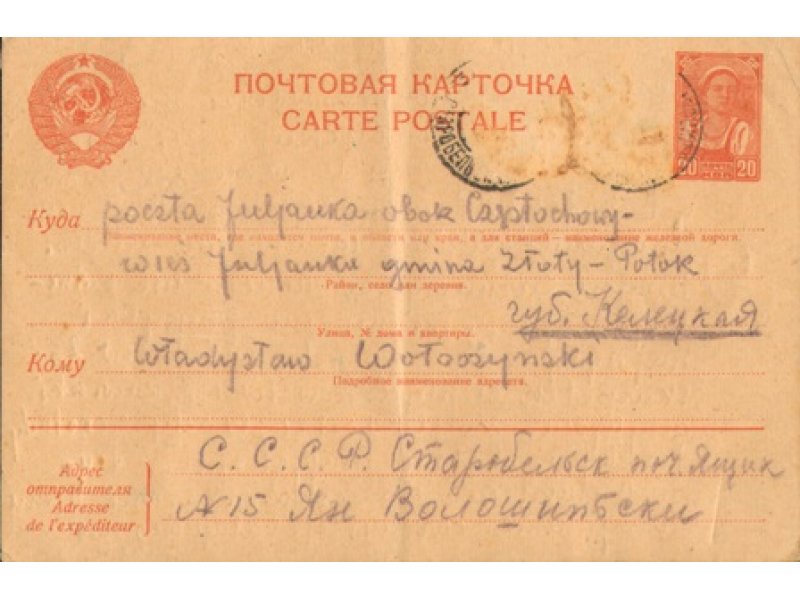 ПОЧТОВАЯ КАРТОЧКА
CARTE POSTALE
20 20
Куда poczta Juljanka obok Częstochowy-
Наименование места, где находится почта, и области или края, а для станций — наименование железной дороги.
wieś Juljanka gmina Złoty-Potok
Район, село или деревня.
губ. Келецкая
Улица, № дома и квартиры.
Кому Władysław Wołoszyński
Подробное наименование адресата.
С. С. С. Р. Старобельск поч. Ящик
Адрес отправителя
Adresse de l'expéditeur
№15 Ян Волошиньски